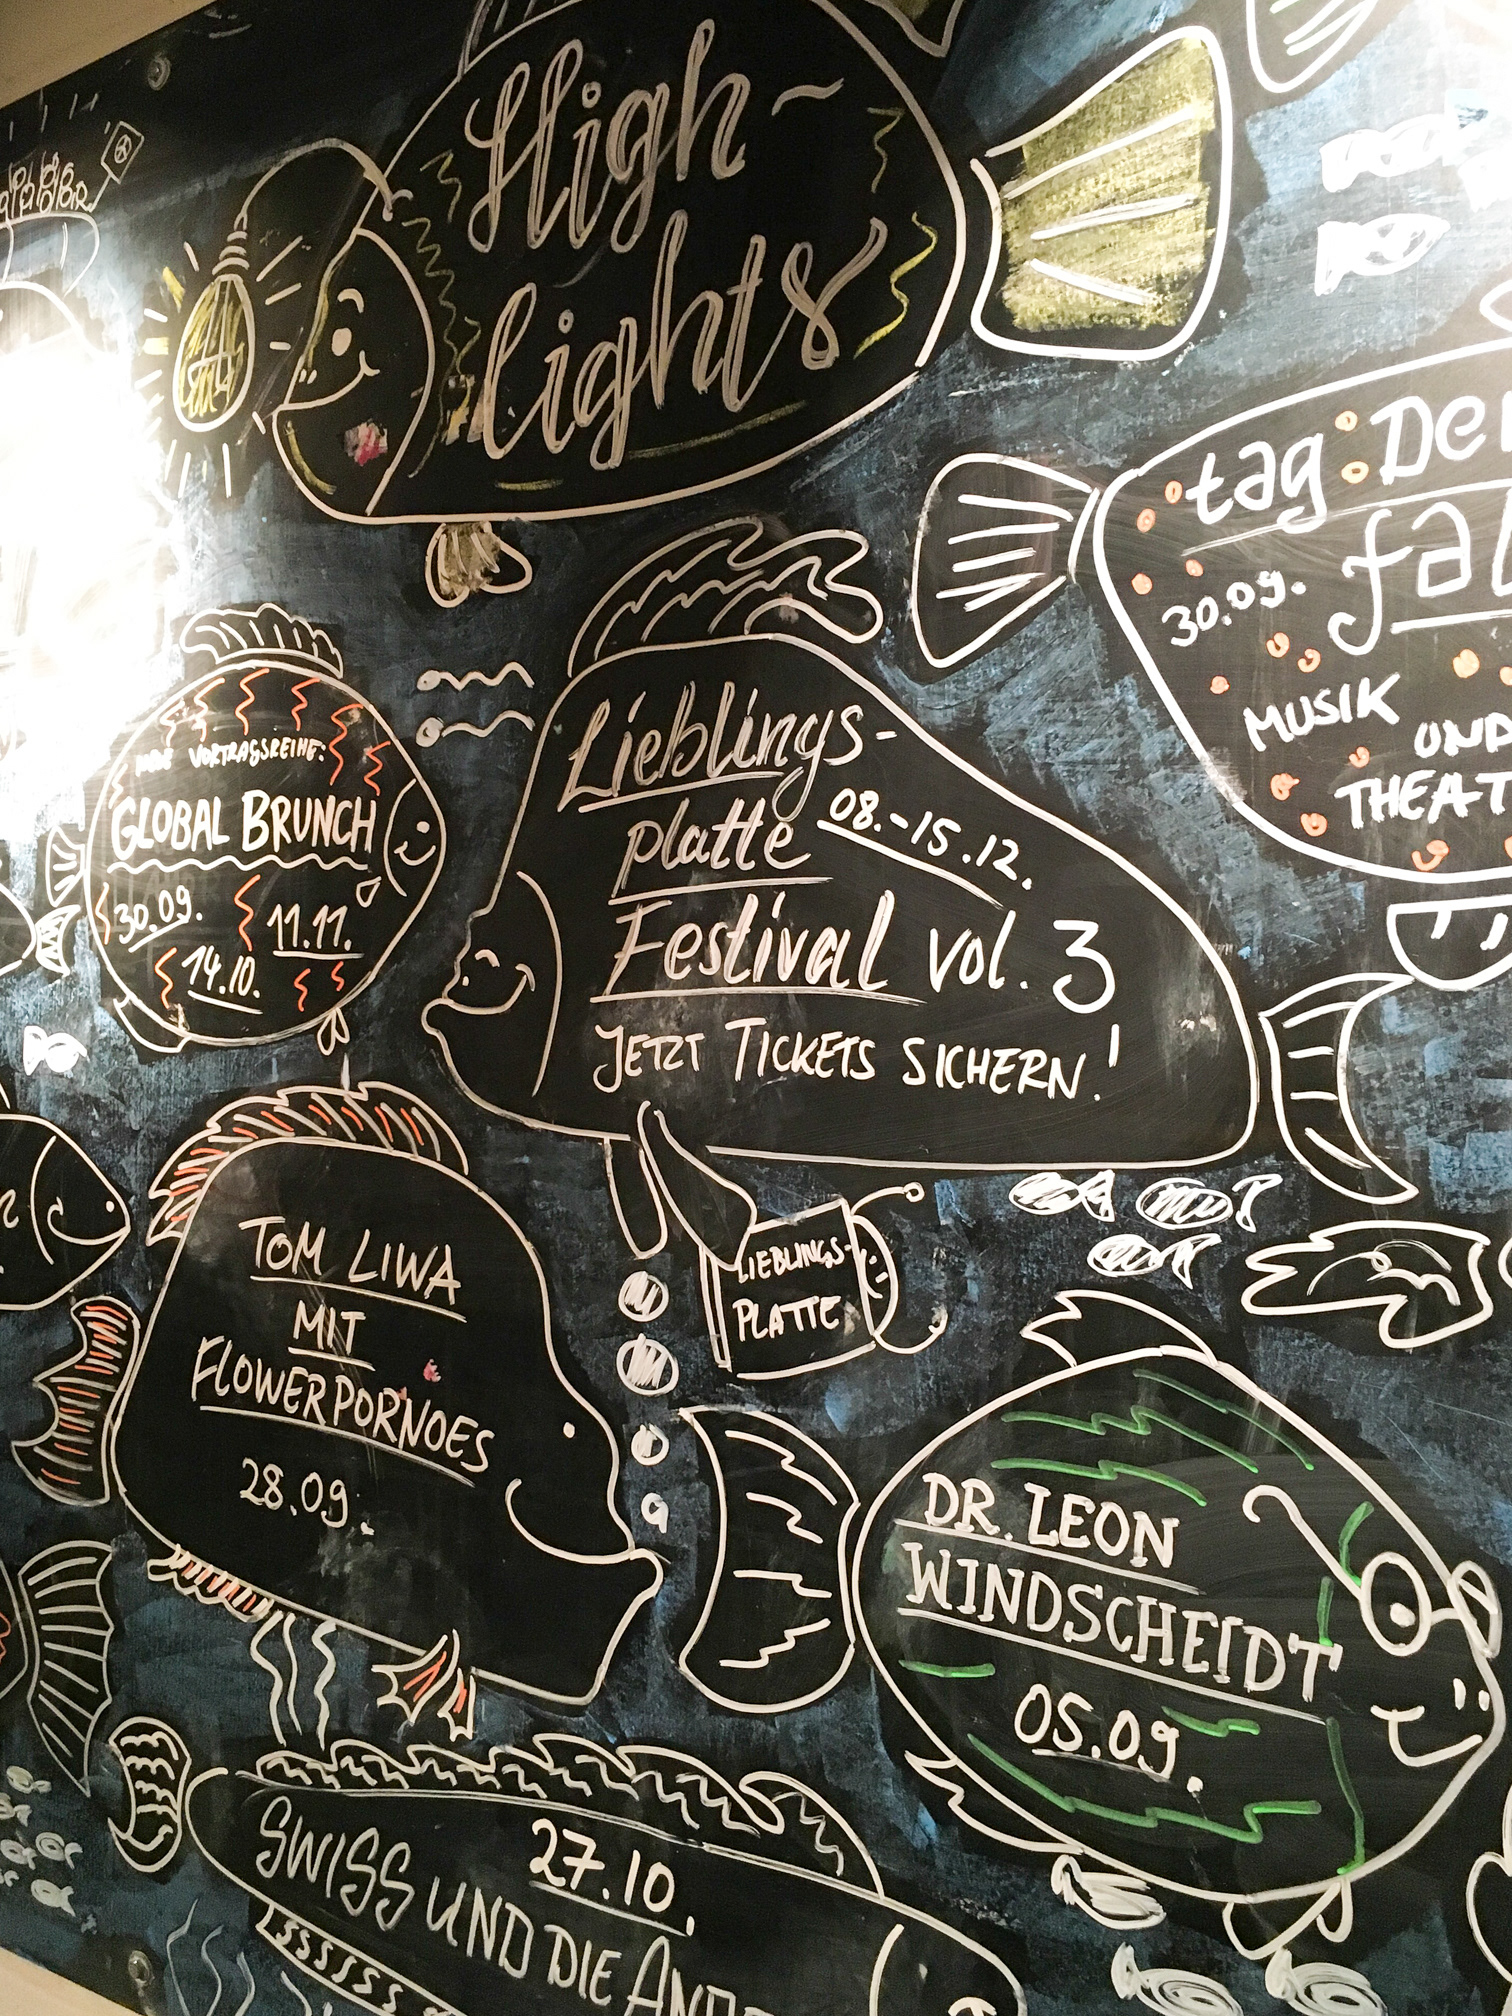 High-
lights
tag De
30.09. fal
MUSIK
UND
THEAT
VORTRAGSREIHE:
GLOBAL BRUNCH
30.09. 11.11.
14.10.
Lieblings-
platte 08.-15.12.
Festival vol. 3
JETZT TICKETS SICHERN!
LIEBLINGS-
PLATTE
TOM LIWA
MIT
FLOWERPORNOES
28.09.
DR. LEON
WINDSCHEIDT
05.09.
27.10.
SWISS UND DIE AND